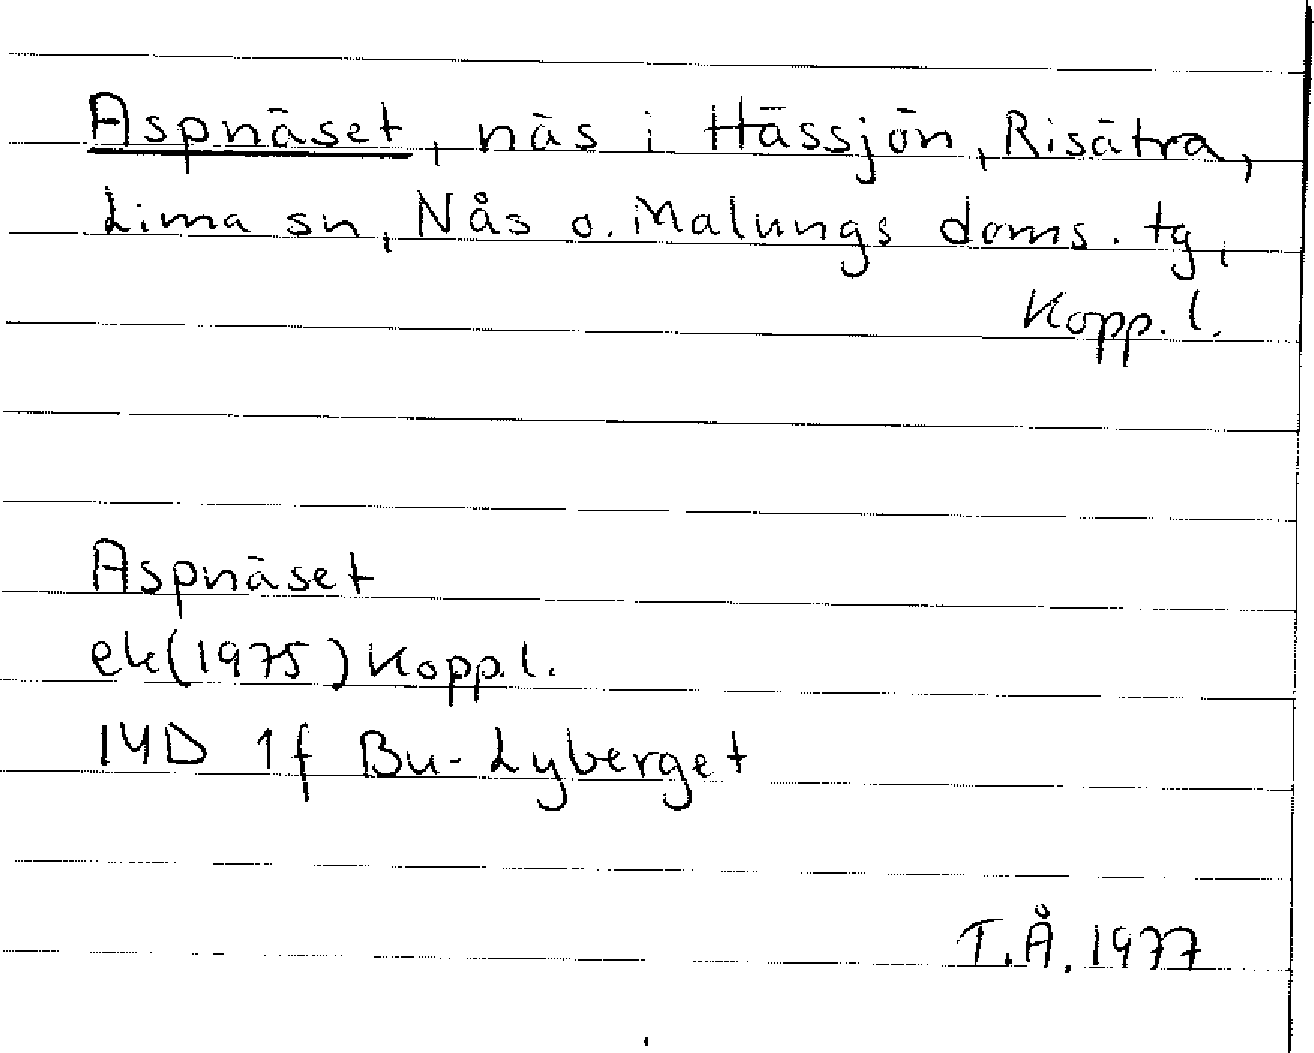 Aspnäset, näs i Hässjön, Risätra,
Lima sn, Nås o. Malungs doms. tg,
Kopp. l.
Aspnäset
ek(1975) Kopp.l.
14D 1f Bu-Lyberget
T.Å. 1977